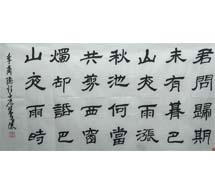 君問歸期
未有朞巴
山夜雨漲
秋池何當
共剪西窗
燭却話巴
山夜雨時
李商隱詩